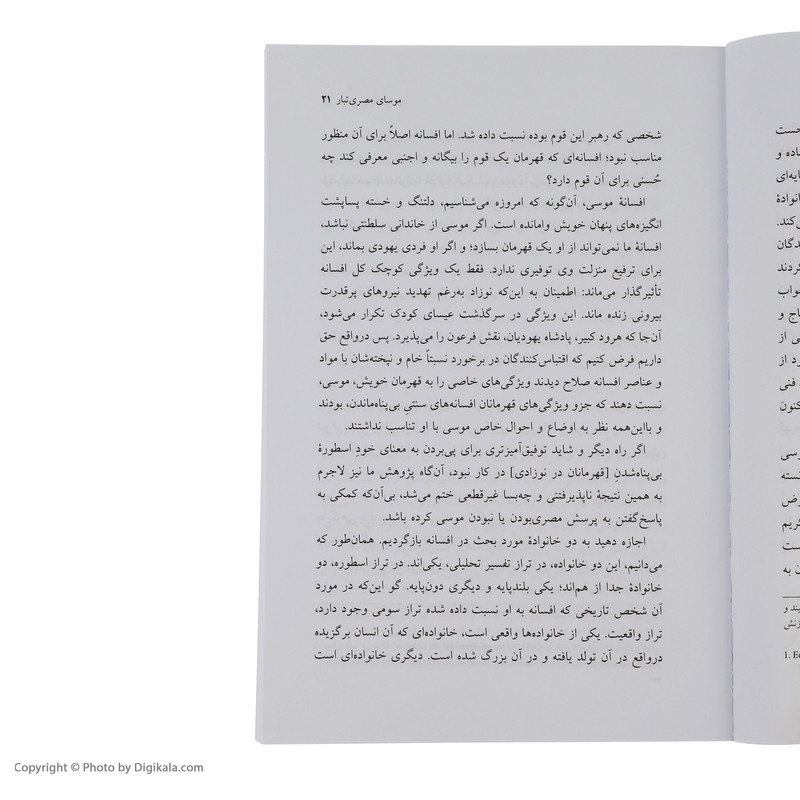 موسای مصری‌تبار ۲۱
شخصی که رهبر این قوم بوده نسبت داده شد. اما افسانه اصلاً برای آن منظور
مناسب نبود؛ افسانه‌ای که قهرمان یک قوم را بیگانه و اجنبی معرفی کند چه
حُسنی برای آن قوم دارد؟
افسانهٔ موسی، آن‌گونه که امروزه می‌شناسیم، دلتنگ و خسته پساپشت
انگیزه‌های پنهان خویش وامانده است. اگر موسی از خاندانی سلطنتی نباشد،
افسانهٔ ما نمی‌تواند از او یک قهرمان بسازد؛ و اگر او فردی یهودی بماند، این
برای ترفیع منزلت وی توفیری ندارد. فقط یک ویژگی کوچک کل افسانه
تأثیرگذار می‌ماند: اطمینان به این‌که نوزاد به‌رغم تهدید نیروهای پرقدرت
بیرونی زنده ماند. این ویژگی در سرگذشت عیسای کودک تکرار می‌شود،
آن‌جا که هرود کبیر، پادشاه یهودیان، نقش فرعون را می‌پذیرد. پس درواقع حق
داریم فرض کنیم که اقتباس‌کنندگان در برخورد نسبتاً خام و نپخته‌شان با مواد
و عناصر افسانه صلاح دیدند ویژگی‌های خاصی را به قهرمان خویش، موسی،
نسبت دهند که جزو ویژگی‌های قهرمانان افسانه‌های سنتیِ بی‌پناه‌ماندن، بودند
و بااین‌همه نظر به اوضاع و احوال خاص موسی با او تناسب نداشتند.
اگر راه دیگر و شاید توفیق‌آمیزتری برای پی‌بردن به معنای خودِ اسطورهٔ
بی‌پناه‌شدنِ [قهرمانان در نوزادی] در کار نبود، آن‌گاه پژوهش ما نیز لاجرم
به همین نتیجهٔ ناپذیرفتنی و چه‌بسا غیرقطعی ختم می‌شد، بی‌آن‌که کمکی به
پاسخ‌گفتن به پرسش مصری‌بودن یا نبودن موسی کرده باشد.
اجازه دهید به دو خانوادهٔ مورد بحث در افسانه بازگردیم. همان‌طور که
می‌دانیم، این دو خانواده، در تراز تفسیر تحلیلی، یکی‌اند. در تراز اسطوره، دو
خانوادهٔ جدا از هم‌اند؛ یکی بلندپایه و دیگری دون‌پایه. گو این‌که در مورد
آن شخص تاریخی که افسانه به او نسبت داده شده تراز سومی وجود دارد،
تراز واقعیت. یکی از خانواده‌ها واقعی است، خانواده‌ای که آن انسان برگزیده
درواقع در آن تولد یافته و در آن بزرگ شده است. دیگری خانواده‌ای است
Copyright © Photo by Digikala.com